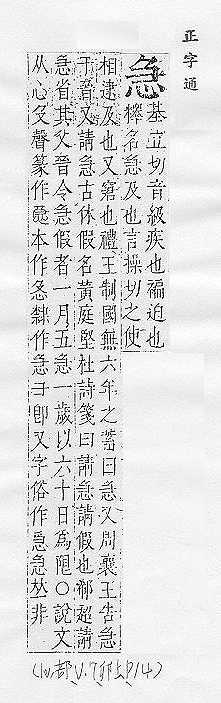 正字通
急
基立切音級疾也褊迫也
釋名急及也言操切之使
相逮及也又窘也禮王制國無六年之蓄曰急又周襄王告急
于晉又請急古休假名黃庭堅杜詩箋曰請急請假也郗超請
急省其父晉令急假者一月五急一歲以六十日為限○說文
从心及聲篆作𢚩本作㤂隸作急彐卽又字俗作急𢚩𠀤非
(心部